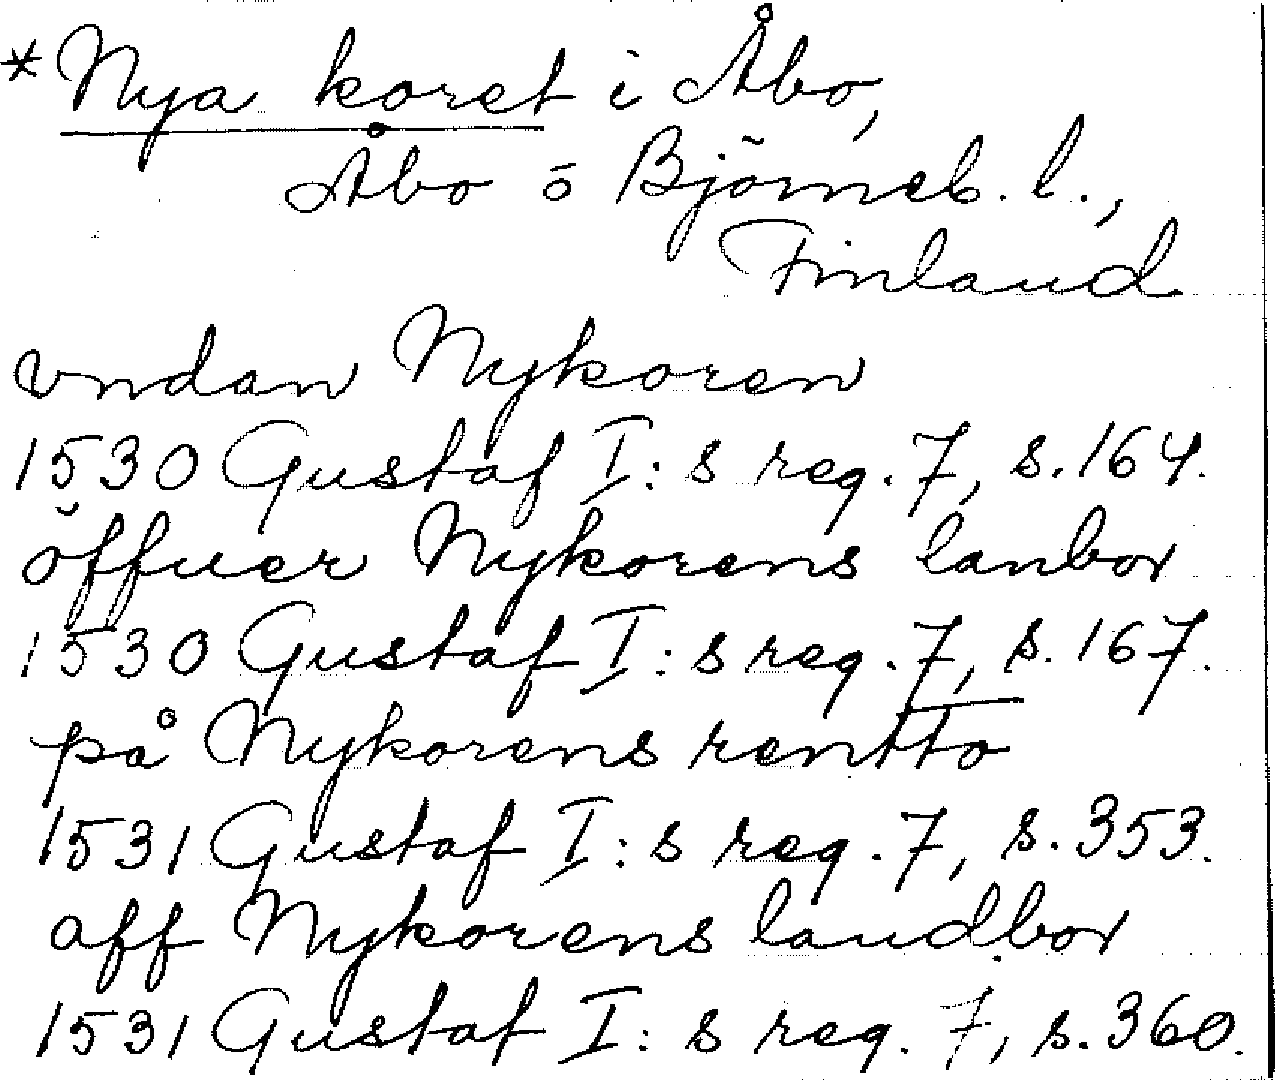 *Nya koret i Åbo,
Åbo o Björneb. l.,
Finland
vndan Nykoren
1530 Gustaf I:s reg. 7, s. 164.
öffuer Nykorens lanbor
1530 Gustaf I:s reg. 7, s. 167.
på Nykorens rentto
1531 Gustaf I:s reg. 7, s. 353.
aff Nykorens landbor
1531 Gustaf I:s reg. 7, s. 360.